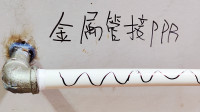 金属管接PPR